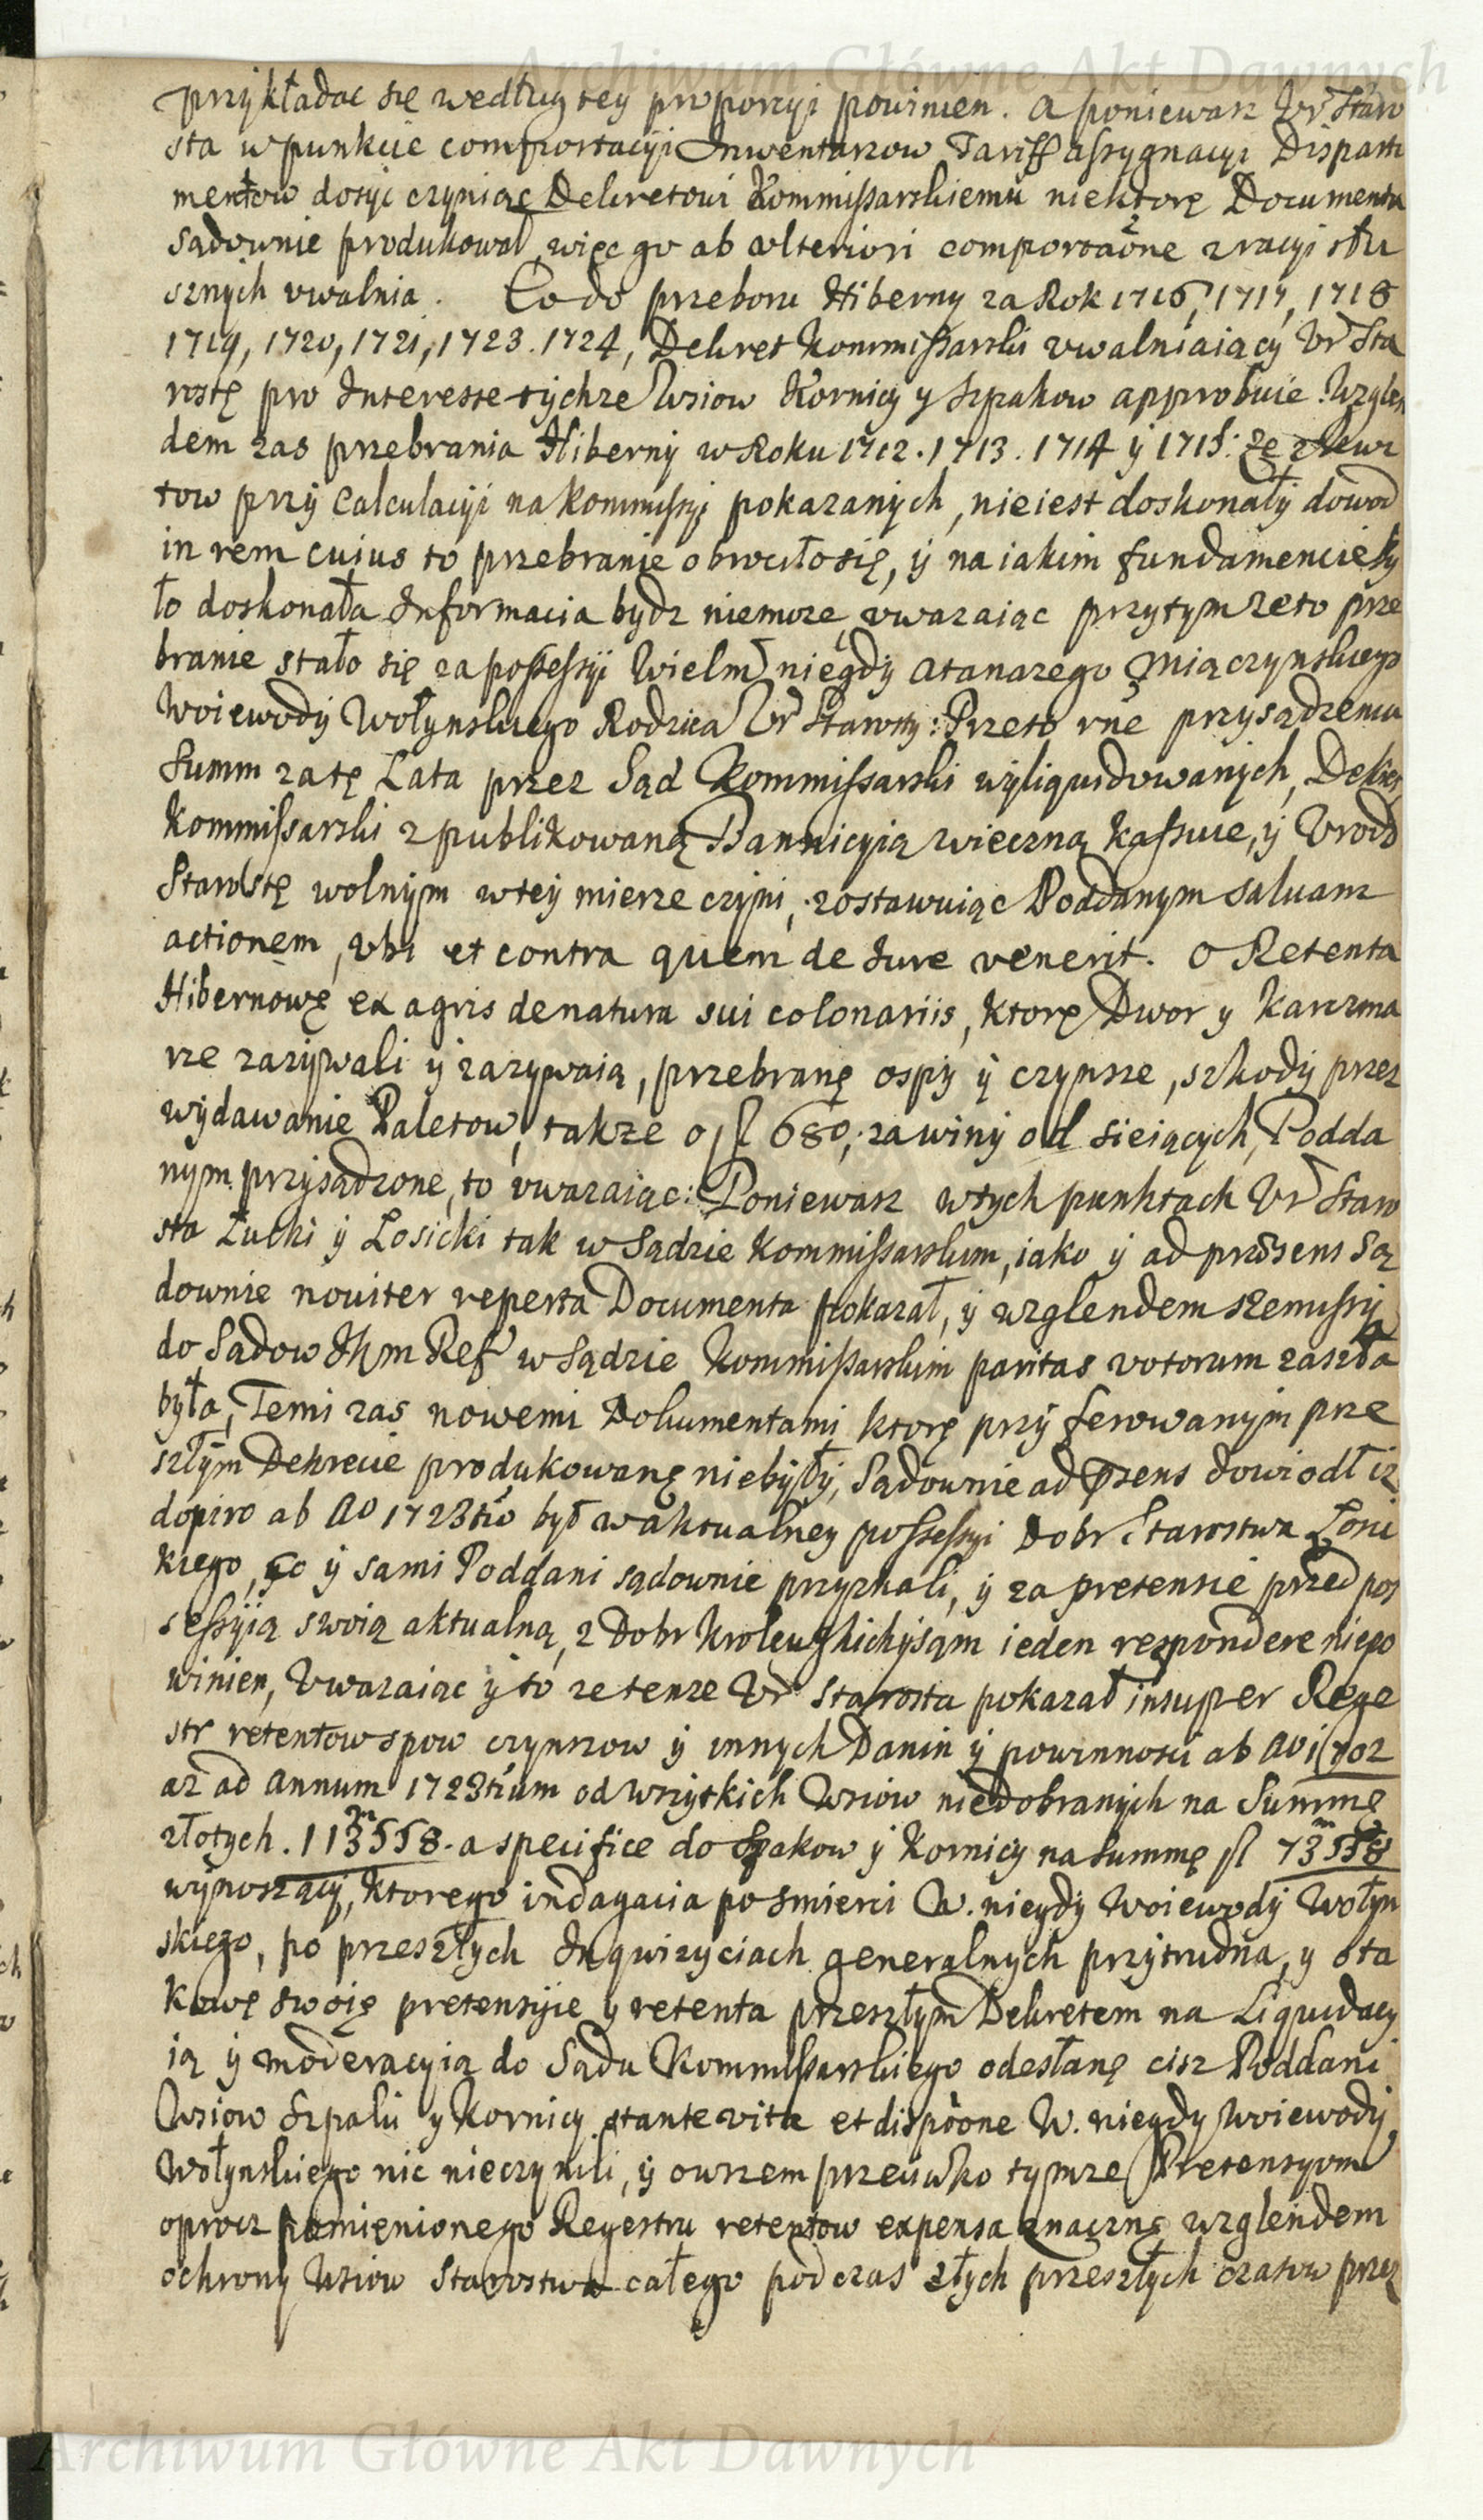 przykładac się według tey proporcyi powinien. a poniewasz Ur Staro
sta w punkcie comportacyi Inwentarzow Tariff assygnacyi Disparti
mentow dosyc czyniąc Dekretowi Kommissarskiemu niektorę Documenta
sądownie produkowal, więc go ab ulteriori comportaõne z racyi słu
sznych uwalnia. Co do przeboru Hiberny za Rok 1716, 1717, 1718
1719, 1720, 1721, 1723. 1724, Dekret Kommissarski uwalniaiący Ur Sta
rostę pro Interesse tychze Wsiow Kornicy y Szpakow approbuie. Wzglen
dem zas przebrania Hiberny w Roku 1712. 1713. 1714 y 1715: ze z Kwi
tow przy calculacyi na kommissyi pokazanych, nie iest doskonały dowod
in rem cuius to przebranie obrociło się, y na iakim fundamencie by
ło doskonała Informacia bydz niemoze, uwazaiąc przytym ze to prze
branie stało się za possessyi Wielm niegdy Atanazego Miączynskiego
Woiewody Wołynskiego Rodzica Ur Starosty: Przeto rne przysądzeniu
Summ za tę Lata przez Sąd Kommissarski wyliquidowanych, Dekret
Kommissarski z publikowaną Bannicyią wieczną kassuie, y Urodz
Starostę wolnym w tey mierze czyni, zostawuiąc Poddanym salvam
actionem, ubi et contra quem de Iure venerit. O Retenta
Hibernowę ex agris de natura sui colonariis, ktorę Dwor y Karczma
rze zazywali y zazywaią, przebranę ospy y czynsze, szkody przez
wydawanie Paletow, takze o fl 680, za winy od sieiących, Podda
nym przysądzone, to uwazaiąc: Poniewasz w tych punktach Ur Staro
sta Łucki y Losicki tak w Sądzie Kommissarskim, iako y ad præsens Są
downie noviter reperta Documenta pokazał, y wzglendem Remissyi
do Sądow Ihm Reff w Sądzie Kommissarskim paritas votorum zaszła
była, Temi zas nowemi Dokumentami ktorę przy ferowanym prze
szłym Dekrecie produkowanę niebyły, Sądownie ad præsens dowiodł iz
dopiro ab Ao 1723tio był w aktualney possessyi Dobr Starostwa Łosic
kiego, co y sami Poddani sądownie przyznali, y za pretensie przed pos
sessyią swoią aktualną, z Dobr Krolewskichysąm ieden respondere niepo
winien, Uwazaiąc y to ze tenze Ur Starosta pokazał insuper Rege
str retentow spow czynszow y innych Danin y powinnosci ab Ao 1702
az ad annum 1723tium od wszytkich Wsiow niedobranych na Summę
złotych. 113m558. a specifice do Szpakow y Kornicy na summę fl 73m558
wynoszący, ktorego indagacia po smierci W. niegdy Woiewody Wołyn
skiego, po przeszłych Inqwizyciach generalnych przytrudna, y o ta
kowę swoię pretensyie y retenta przeszłym Dekretem na Liquidacy
ią y moderacyią do Sądu Kommissarskiego odesłanę cisz Poddani
Wsiow Szpaki y Kornicy stante vita et dispõone W. niegdy Woiewody
Wołynskiego nic nieczynili, y owszem przeciwko tymze Pretensyom
oprocz pomienionego Regestru retentow expensa znacznę wzglendem
ochrony Wsiow Starostwa całego podczas złych przeszłych czasow przez